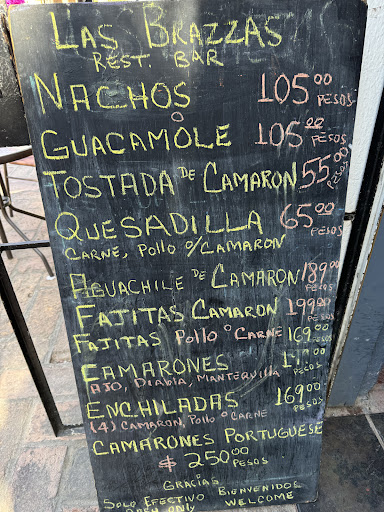 Las Brazzas
Rest. Bar
Nachos 105.00 Pesos
o
Guacamole 105.00 Pesos
Tostada de Camaron 55.00 Pesos
Quesadilla 65.00 Pesos
Carne, Pollo o/Camaron
Aguachile de Camaron 189.00 Pesos
Fajitas Camaron 199.00 Pesos
Fajitas Pollo o Carne 169.00 Pesos
Camarones .00 Pesos
Ajo, Diabla, Mantequilla
Enchiladas 169.00 Pesos
(4) Camaron, Pollo o Carne
Camarones Portuguese
$ 250.00 Pesos
Gracias
Solo Efectivo Bienvenidos
Cash Only Welcome